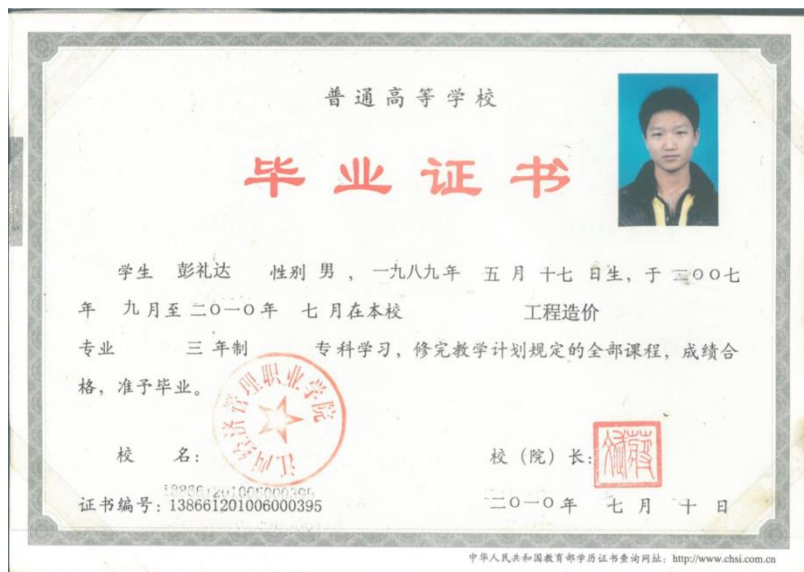 普通高等学校
毕业证书
学生 彭礼达 性别 男 , 一九八九年 五 月 十七 日生, 于 二〇〇七
年 九 月至 二〇一〇年 七 月在本校 工程造价
专业 三 年制 专科学习, 修完教学计划规定的全部课程, 成绩合
格, 准予毕业。
江西经济管理职业学院
校 名: 校 (院) 长:
138661201006000395
证书编号: 138661201006000395 二〇一〇年 七 月 十 日
中华人民共和国教育部学历证书查询网址: http://www.chsi.com.cn